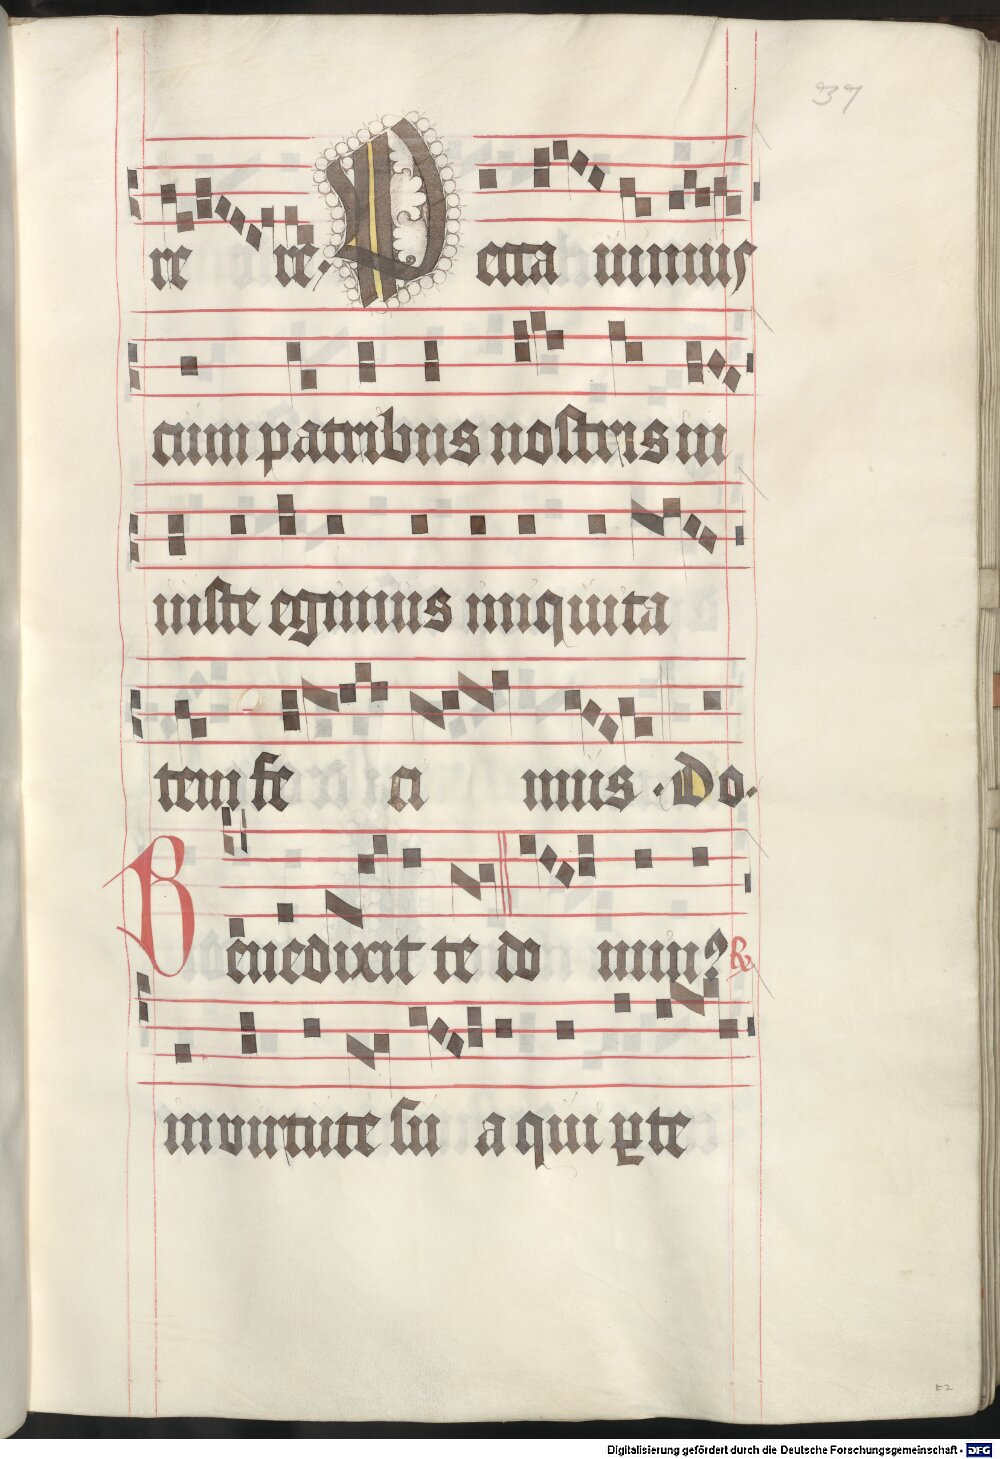 37
re re. Pecca uimus
cum patribus nostris in
iuste egimus iniquita
tem fe ci mus. Do.
Benedixit te do min9 R
in uirtute su a qui ꝑ te
t2
Digitalisierung gefördert durch die Deutsche Forschungsgemeinschaft - DFG